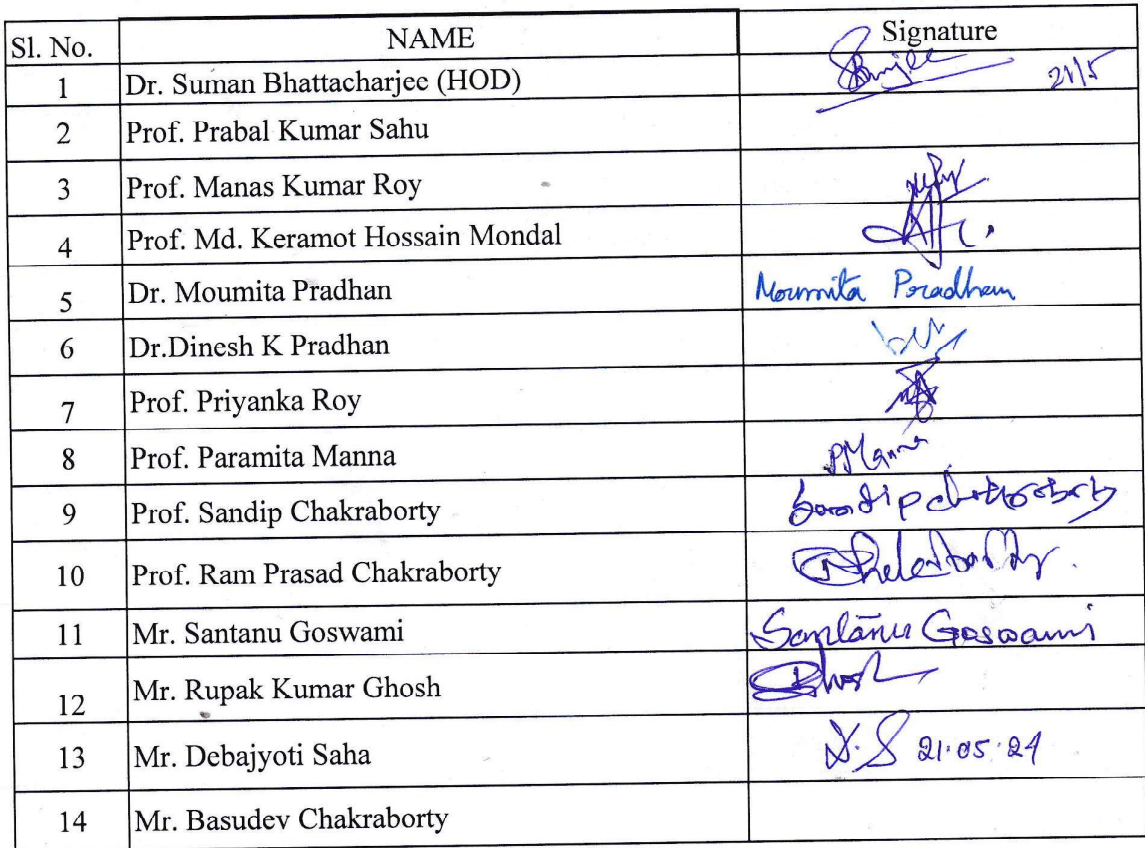 Sl. No. NAME Signature
1 Dr. Suman Bhattacharjee (HOD) 21/5
2 Prof. Prabal Kumar Sahu
3 Prof. Manas Kumar Roy
4 Prof. Md. Keramot Hossain Mondal
5 Dr. Moumita Pradhan Moumita Pradhan
6 Dr.Dinesh K Pradhan
7 Prof. Priyanka Roy
8 Prof. Paramita Manna PManna
9 Prof. Sandip Chakraborty Sandip Chakraborty
10 Prof. Ram Prasad Chakraborty
11 Mr. Santanu Goswami Santanu Goswami
12 Mr. Rupak Kumar Ghosh
13 Mr. Debajyoti Saha D.S 21.05.24
14 Mr. Basudev Chakraborty